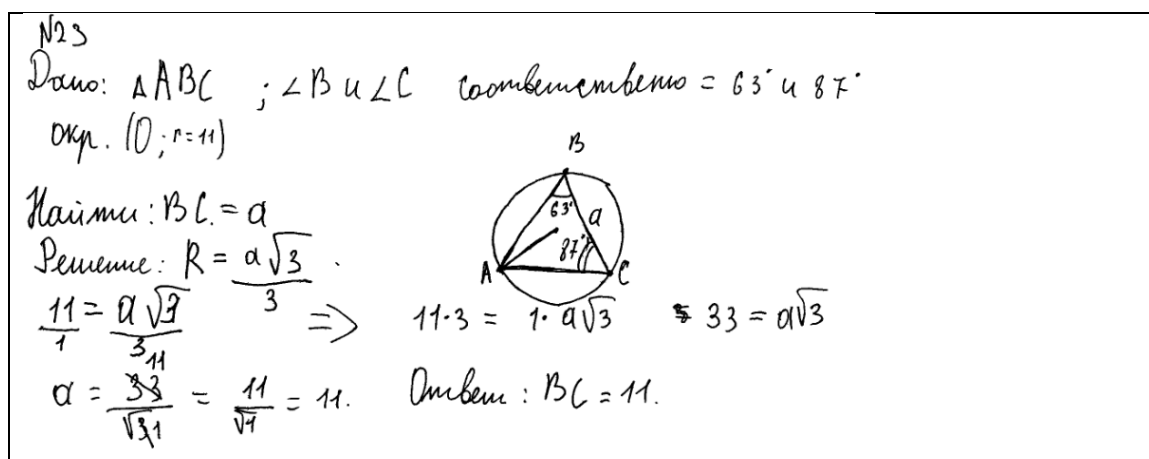 №23
Дано: ΔABC ; ∠B и ∠C соответственно = 63° и 87°
окр. (O; r=11)
Найти: BC = a
Решение: R = a√3 / 3 .
11/1 = a√3 / 3 => 11·3 = 1·a√3 33 = a√3
a = 33 11 / √3 1 = 11/√1 = 11. Ответ: BC = 11.
B
63°
a
87°
A
C